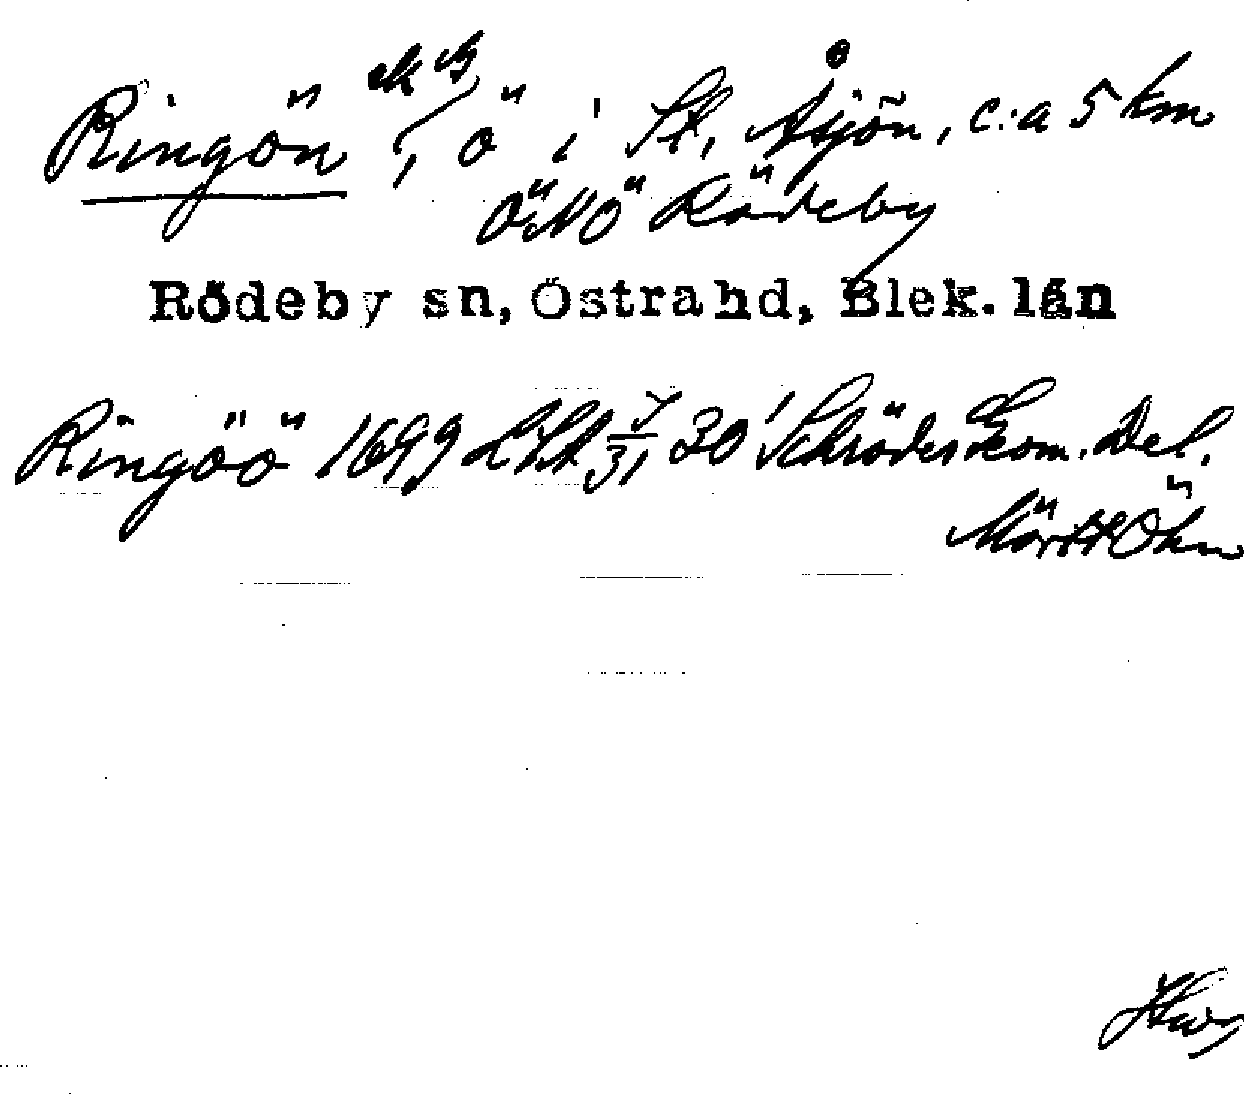 Ringön, ö i St. Åsjön, c:a 5 km
ÖNÖ Rödeby
Rödeby sn, Östra hd, Blek. län
Ringöö 1699 LSA 7/31 30 Schröders kom. Del.
Märit Öhn